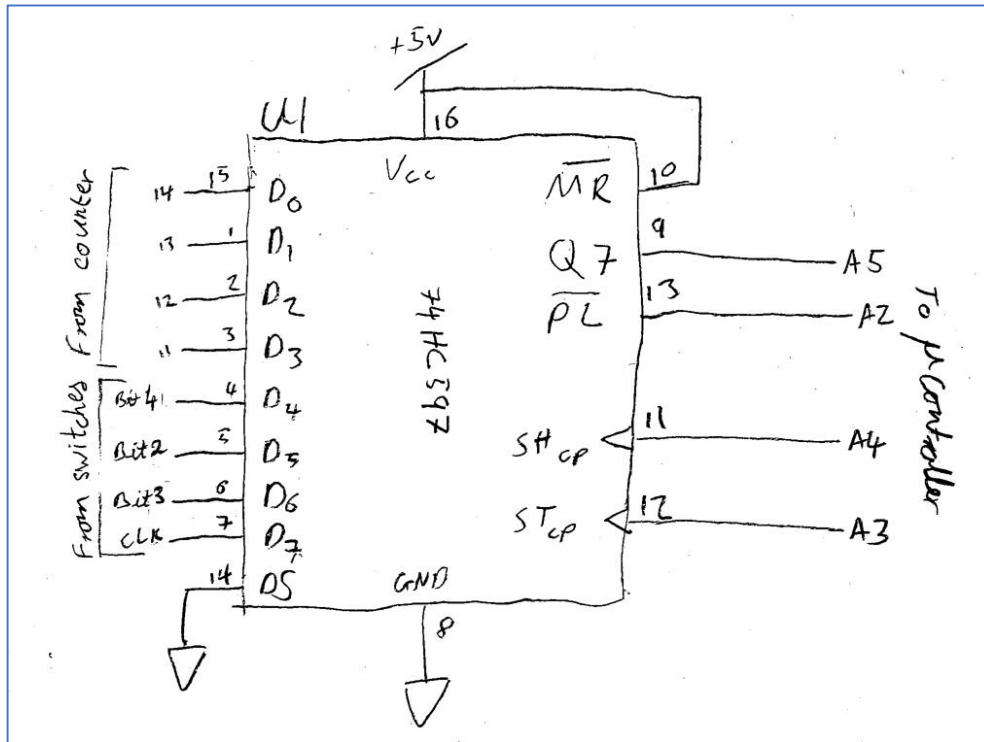 +5V
U1
16
Vcc
From counter
14 15 D0
13 1 D1
12 2 D2
11 3 D3
From switches
Bit1 4 D4
Bit2 5 D5
Bit3 6 D6
CLK 7 D7
14 DS
74HC597
MR 10
Q7 9 A5
PL 13 A2
SHcp 11 A4
STcp 12 A3
To μcontroller
GND
8